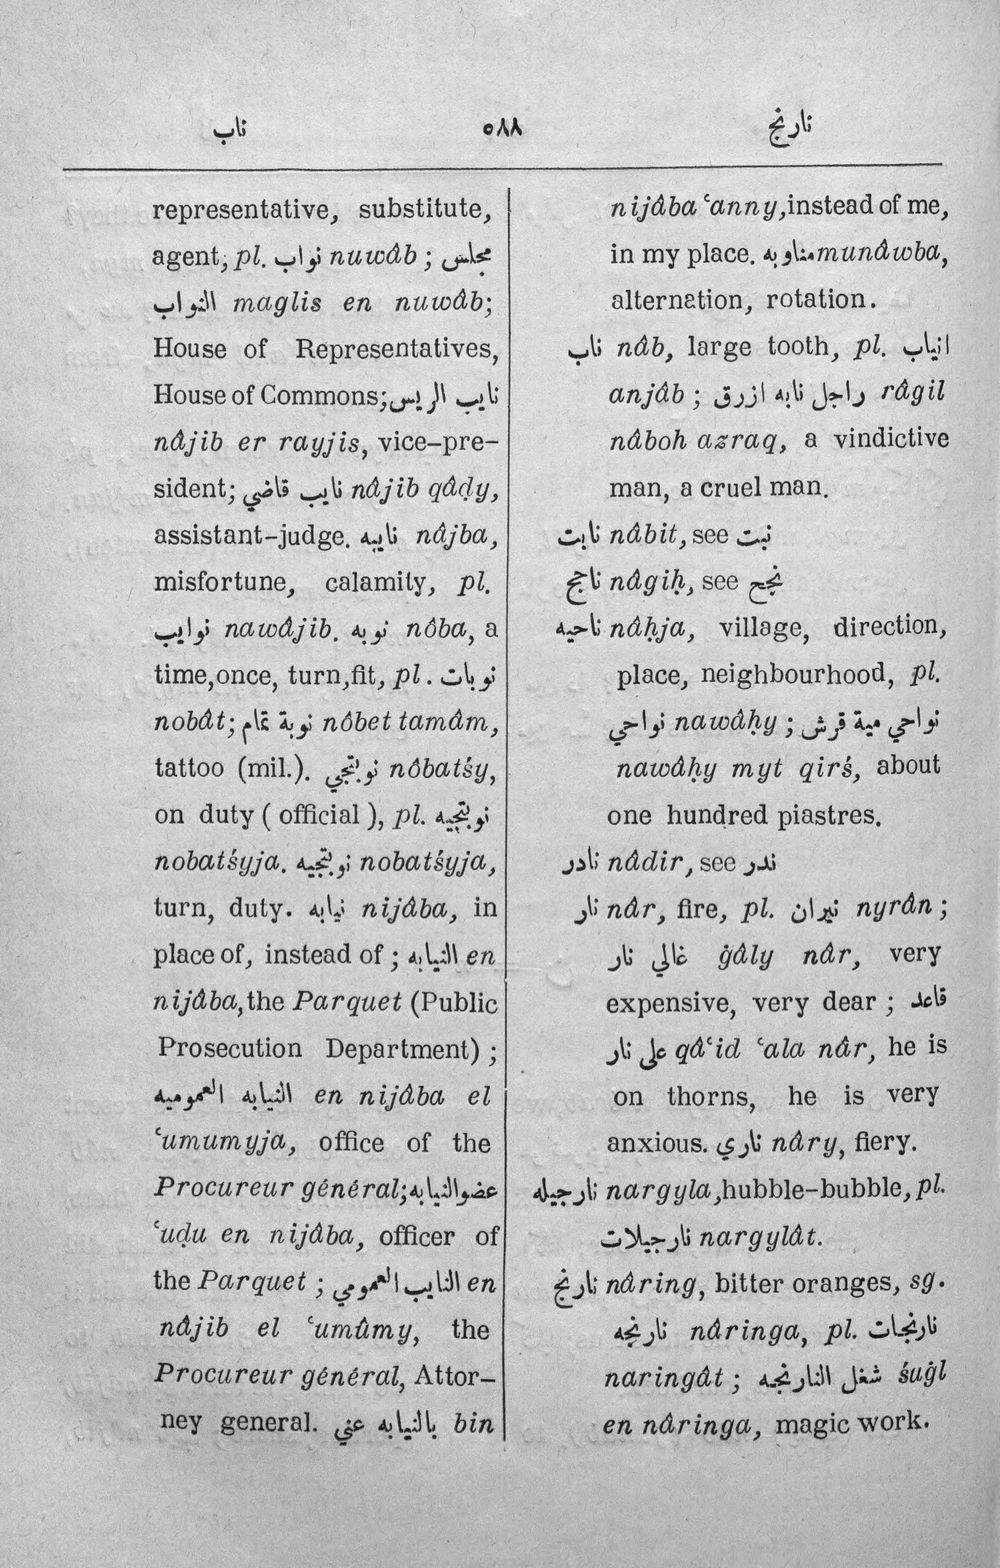 ناب ٥٨٨ نارنج
representative, substitute,
agent; pl. نواب nuwâb ; مجلس
النواب maglis en nuwâb;
House of Representatives,
House of Commons; نايب الريس
nâjib er rayjis, vice-pre-
sident; نايب قاضي nâjib qâḍy,
assistant-judge. نايبه nâjba,
misfortune, calamity, pl.
نوايب nawâjib. نوبه nôba, a
time, once, turn, fit, pl. نوبات
nobât; نوبة تمام nôbet tamâm,
tattoo (mil.). نوبتجي nôbatśy,
on duty ( official ), pl. نوبتجيه
nobatśyja. نوبتجيه nobatśyja,
turn, duty. نيابه nijâba, in
place of, instead of ; النيابه en
nijâba, the Parquet (Public
Prosecution Department) ;
النيابه العموميه en nijâba el
ʿumumyja, office of the
Procureur général; عضو النيابه
ʿuḍu en nijâba, officer of
the Parquet ; النايب العمومي en
nâjib el ʿumûmy, the
Procureur général, Attor-
ney general. بالنيابه عني bin
nijâba ʿanny, instead of me,
in my place. مناوبه munâwba,
alternation, rotation.
ناب nâb, large tooth, pl. انياب
anjâb ; راجل نابه ازرق râgil
nâboh azraq, a vindictive
man, a cruel man.
نابت nâbit, see نبت
ناجح nâgiḥ, see نجح
ناحيه nâḥja, village, direction,
place, neighbourhood, pl.
نواحي nawâḥy ; نواحي مية قرش
nawâḥy myt qirś, about
one hundred piastres.
نادر nâdir, see ندر
نار nâr, fire, pl. نيران nyrân ;
غالي نار ġâly nâr, very
expensive, very dear ; قاعد
على نار qâʿid ʿala nâr, he is
on thorns, he is very
anxious. ناري nâry, fiery.
نارجيله nargyla, hubble-bubble, pl.
نارجيلات nargylât.
نارنج nâring, bitter oranges, sg.
نارنجه nâringa, pl. نارنجات
naringât ; شغل النارنجه śuġl
en nâringa, magic work.